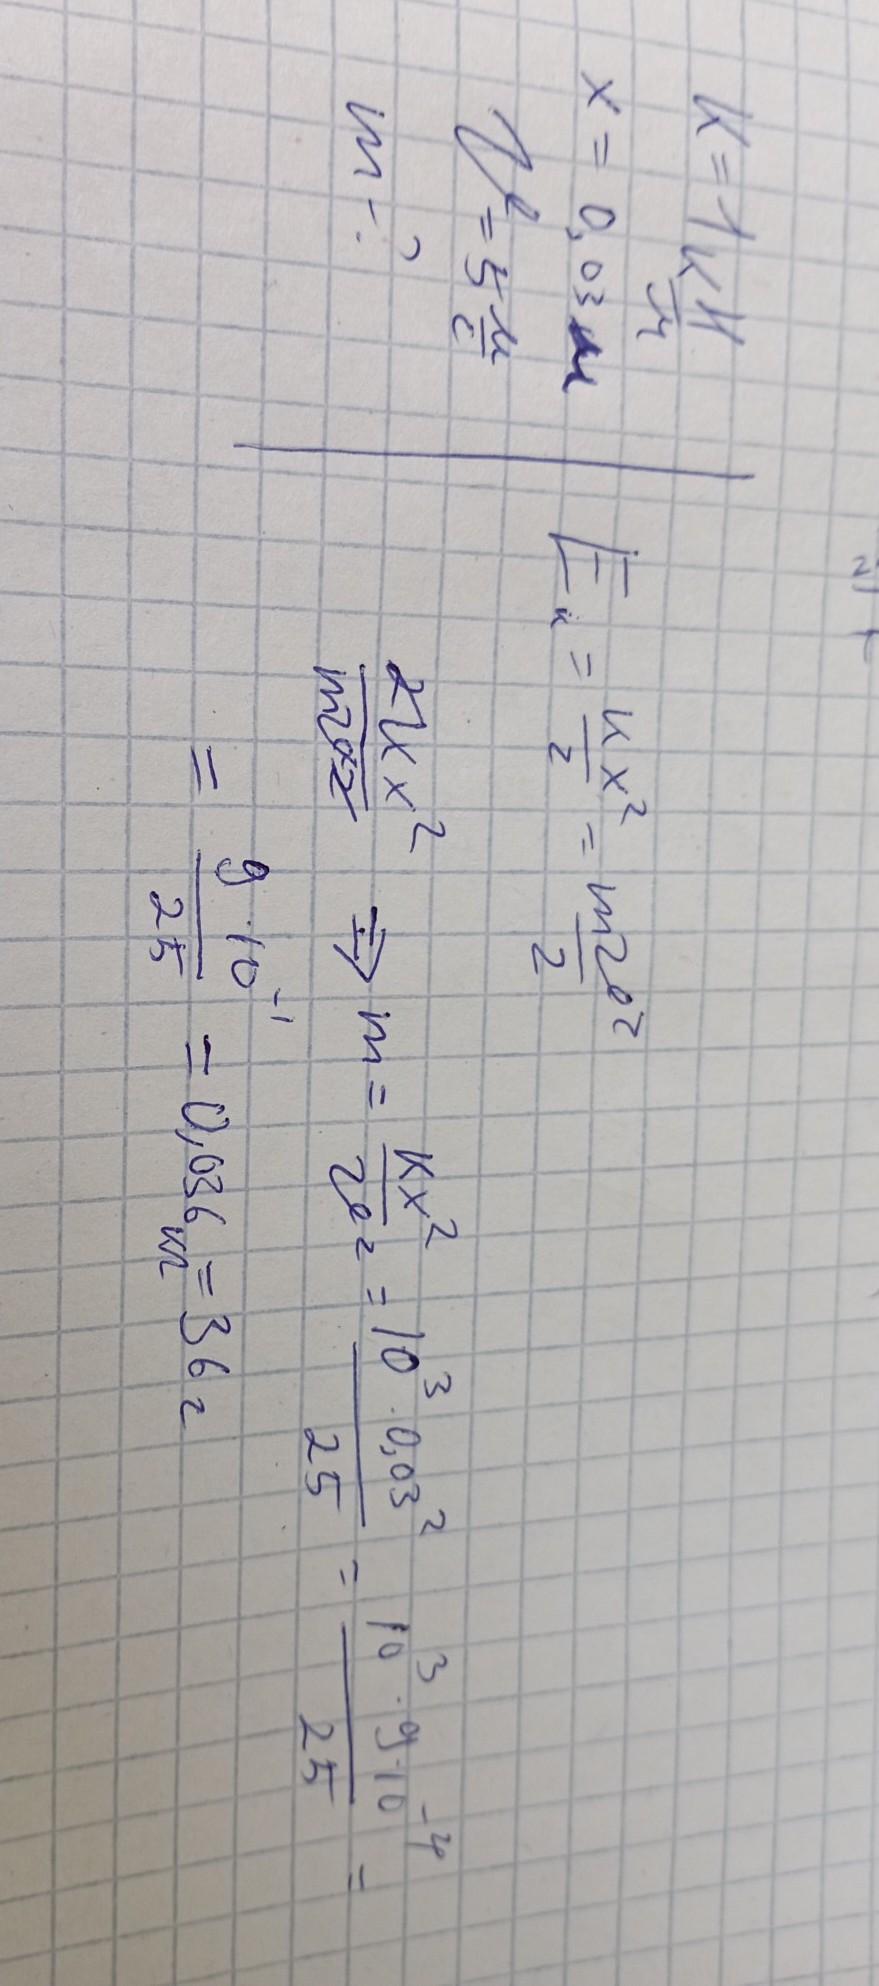 K = 1 кН/м
x = 0,03 м
v = 5 м/с
m - ?
Eк = кx²/2 = mv²/2
2Kx²/mv² ⇒ m = Kx²/v² = 10³ · 0,03²/25 = 10³ · 9 · 10⁻⁴/25 =
= 9 · 10⁻¹/25 = 0,036 = 36 г